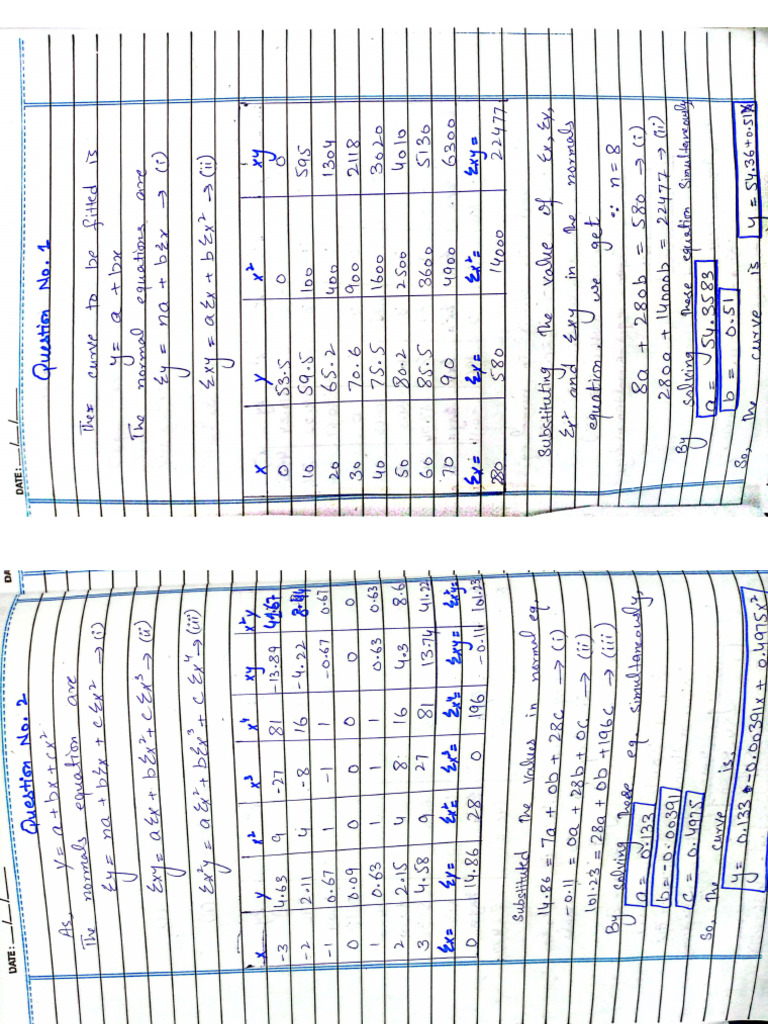 DATE: __/__/__
Question No. 1
The curve to be fitted is
y = a + bx
The normal equations are
Σy = na + bΣx → (i)
Σxy = aΣx + bΣx² → (ii)
x y x² xy
0 53.5 0 0
10 59.5 100 595
20 65.2 400 1304
30 70.6 900 2118
40 75.5 1600 3020
50 80.2 2500 4010
60 85.5 3600 5130
70 90 4900 6300
Σx = Σy = Σx² = Σxy =
280 580 14000 22477
Substituting the value of Σx, Σy,
Σx² and Σxy in the normals
equation, we get ∵ n = 8
8a + 280b = 580 → (i)
280a + 14000b = 22477 → (ii)
By solving these equation simultaneously
a = 54.3583
b = 0.51
So, the curve is y = 54.36+0.51x
DATE: __/__/__
DA
Question No. 2
As, y = a + bx + cx²
The normals equation are
Σy = na + bΣx + cΣx² → (i)
Σxy = aΣx + bΣx² + cΣx³ → (ii)
Σx²y = aΣx² + bΣx³ + cΣx⁴ → (iii)
x y x² x³ x⁴ xy x²y
-3 4.63 9 -27 81 -13.89 41.67
-2 2.11 4 -8 16 -4.22 8.44
-1 0.67 1 -1 1 -0.67 0.67
0 0.09 0 0 0 0 0
1 0.63 1 1 1 0.63 0.63
2 2.15 4 8 16 4.3 8.6
3 4.58 9 27 81 13.74 41.22
Σx = Σy = Σx² Σx³ = Σx⁴ Σxy = Σx²y =
0 14.86 28 0 196 -0.11 101.23
Substituted the values in normal eq.
14.86 = 7a + 0b + 28c → (i)
-0.11 = 0a + 28b + 0c → (ii)
101.23 = 28a + 0b + 196c → (iii)
By solving these eq. simultaneously,
a = 0.133
b = -0.00391
c = 0.4975
So, the curve is
y = 0.133 - 0.00391x + 0.4975x²